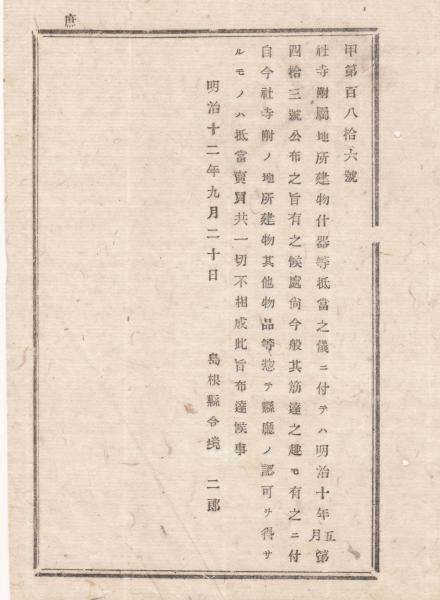 庶
甲第百八拾六號
社寺附屬地所建物什器等抵當之儀ニ付テハ明治十年五月第
四拾三號公布之旨有之候處尙今般其筋達之趣モ有之ニ付
自今社寺附ノ地所建物其他物品等惣テ縣廳ノ認可ヲ得サ
ルモノハ抵當賣買共一切不相成此旨布達候事
明治十二年九月二十日
島根縣令境二郎